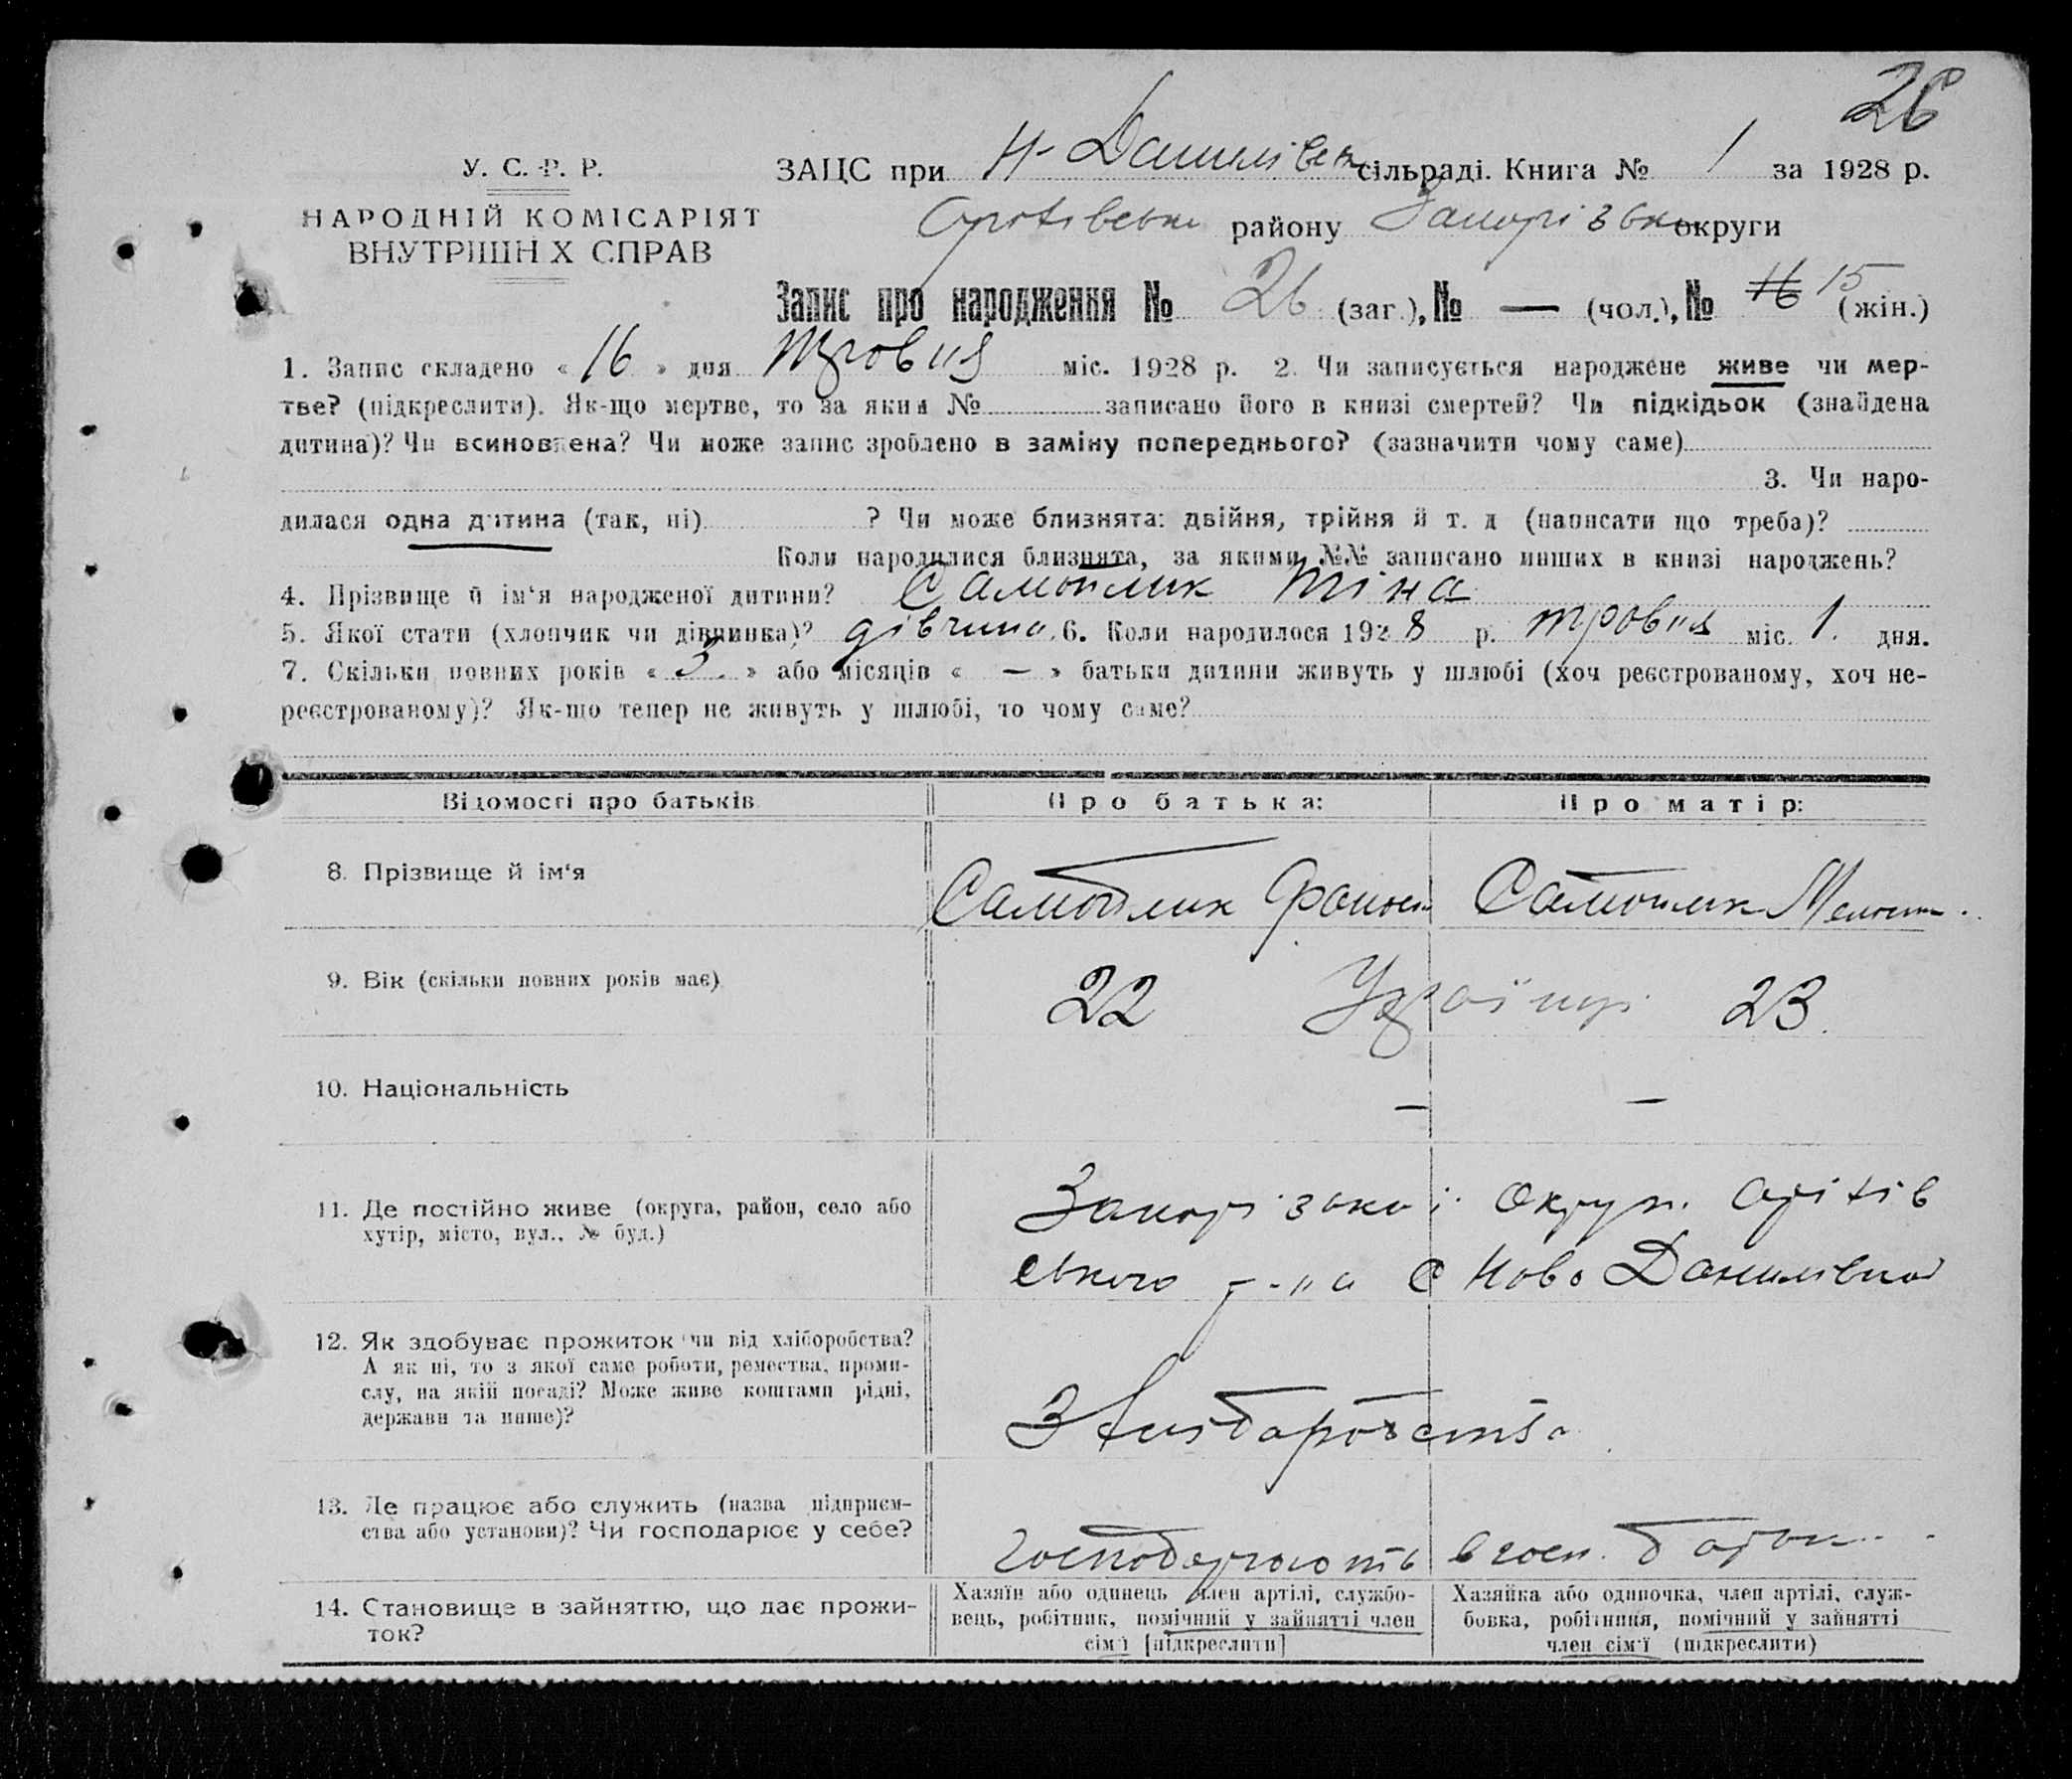 26
У. С. Р. Р.
НАРОДНІЙ КОМІСАРІЯТ
ВНУТРІШН Х СПРАВ
ЗАЦС при Н-Данилівск сільраді. Книга № 1 за 1928 р.
Оріхівськ району Запорізьк округи
Запис про народження № 26 (заг.), № — (чол.), № 16 15 (жін.)
1. Запис складено « 16 » дня Травня міс. 1928 р. 2. Чи записується народжене живе чи мер-
тве? (підкреслити). Як-що мертве, то за яким № записано його в книзі смертей? Чи підкідьок (знайдена
дитина)? Чи всиновлена? Чи може запис зроблено в заміну попереднього? (зазначити чому саме)
3. Чи наро-
дилася одна дитина (так, ні) ? Чи може близнята: двійня, трійня й т. д (написати що треба)?
Коли народилися близнята, за якими №№ записано инших в книзі народжень?
4. Прізвище й ім‘я народженої дитини? Самойлик Тіна
5. Якої статі (хлопчик чи дівчинка)? дівчина. 6. Коли народилося 1928 р. травня міс. 1. дня.
7. Скільки повних років « 3. » або місяців « — » батьки дитини живуть у шлюбі (хоч реєстрованому, хоч не-
реєстрованому)? Як-що тепер не живуть у шлюбі, то чому саме?
Відомості про батьків
Про батька:
Про матір:
8. Прізвище й ім‘я
Самойлик
Самойлик
9. Вік (скільки повних років має)
22 Українці 23.
10. Національність
— —
11. Де постійно живе (округа, район, село або
хутір, місто, вул., № буд.)
Запорізької округ. Оріхів
ського р-на с Ново Данилівка
12. Як здобуває прожиток чи від хліборобства?
А як ні, то з якої саме роботи, ремества, проми-
слу, на якій посаді? Може живе коштами рідні,
держави та инше)?
З хліборобства
13. Де працює або служить (назва підприєм-
ства або установи)? Чи господарює у себе?
господарюють в госп. батьк.
14. Становище в зайняттю, що дає прожи-
ток?
Хазяїн або одинець член артілі, службо-
вець, робітник, помічний у зайнятті член
сім‘ї [підкреслити]
Хазяйка або одиночка, член артілі, служ-
бовка, робітниця, помічний у зайнятті
член сім‘ї (підкреслити)